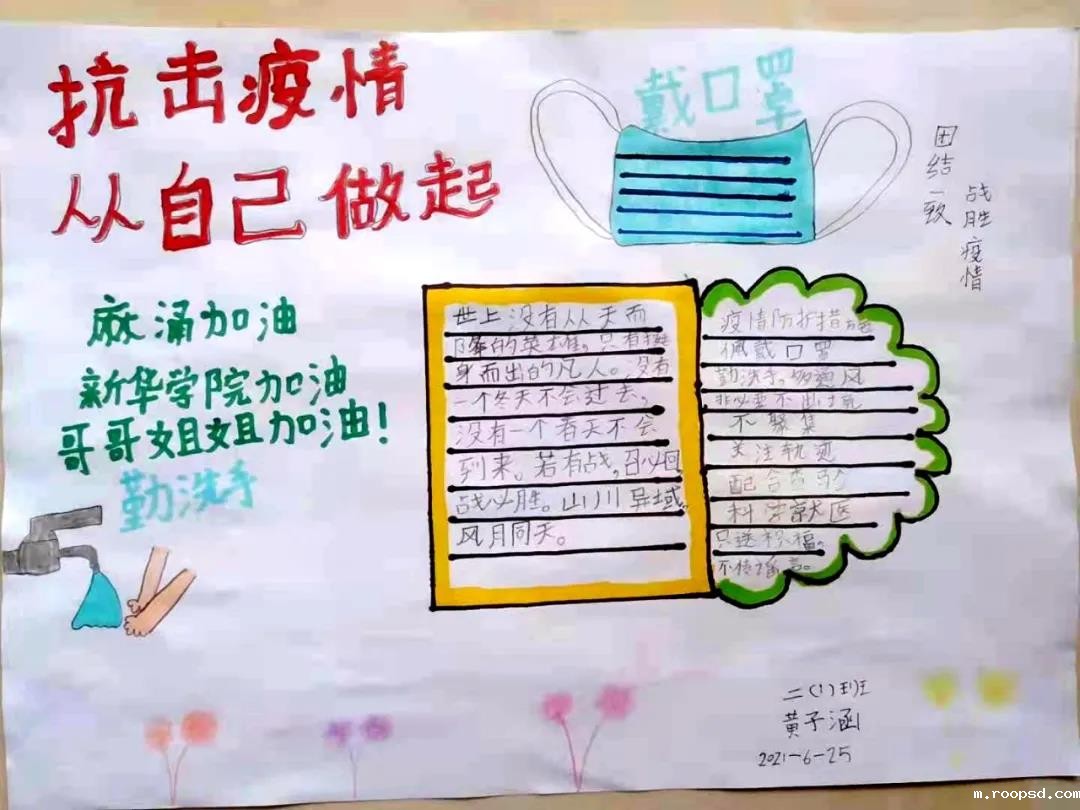 抗击疫情
从自己做起
戴口罩
团结一致
战胜疫情
麻涌加油
新华学院加油
哥哥姐姐加油!
勤洗手
世上没有从天而
降的英雄。只有挺
身而出的凡人。没有
一个冬天不会过去,
没有一个春天不会
到来。若有战,召必回
战必胜。山川异域。
风月同天。
疫情防护措施
佩戴口罩
勤洗手。多通风
非必要不出
不聚集
关注轨迹
配合查验
科学就医
只送祝福。
不传播
二(1)班
黄子涵
2021-6-25
m.roopsd.com